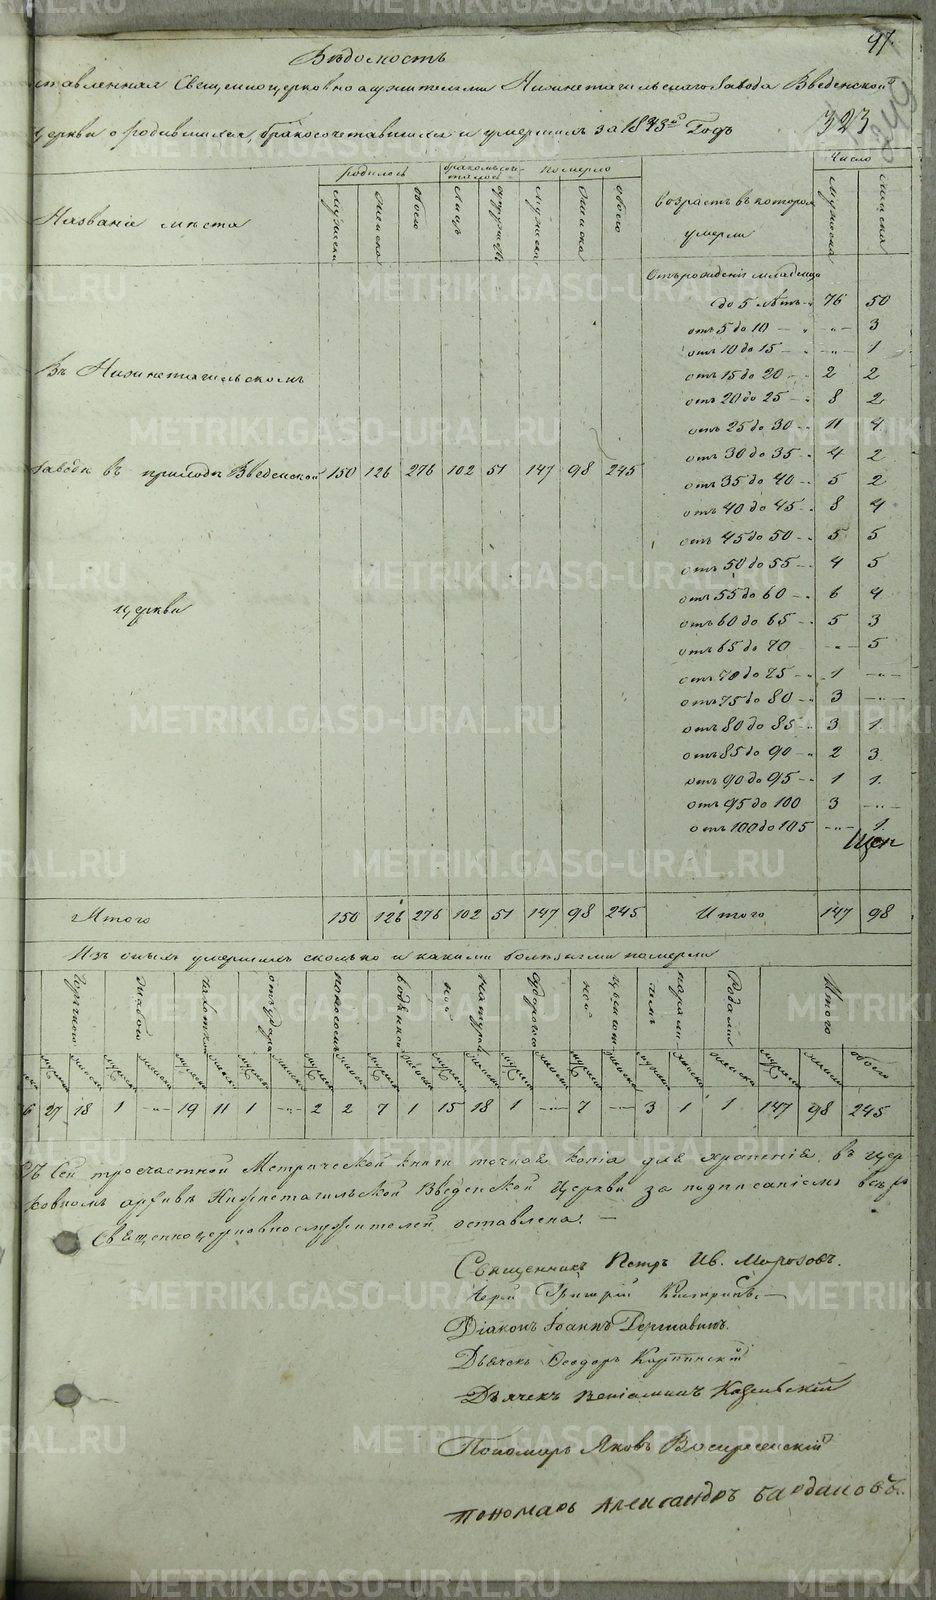 47.
Вѣдомость
ставленная Священноцерковнослужителями Нижнетагильскаго Завода Введенской
церкви о родившихся, бракосочетавшихся и умершихъ за 1843й Годъ
323
Названіе мѣста
родилось
мужеска
женска
обоего
бракомъ соче-
талось
лицъ
супружествъ
померло
мужеска
женска
обоего
возрастъ въ которомъ
умерли
число
мужеска
женска
Отъ рожденія младенцы
до 5 лѣтъ 76 50
отъ 5 до 10 — „ „ — 3
отъ 10 до 15 — „ — 1
отъ 15 до 20 2 2
отъ 20 до 25 8 2
отъ 25 до 30 11 4
отъ 30 до 35 4 2
отъ 35 до 40 5 2
отъ 40 до 45 8 4
отъ 45 до 50 5 5
отъ 50 до 55 4 5
отъ 55 до 60 6 4
отъ 60 до 65 5 3
отъ 65 до 70 — „ — 5
отъ 70 до 75 1 — „ —
отъ 75 до 80 3 — „ —
отъ 80 до 85 3 1
отъ 85 до 90 2 3
отъ 90 до 95 1 1
отъ 95 до 100 3 — „ —
отъ 100 до 105 — „ — 1
Въ Нижнетагильскомъ
Заводѣ въ приходѣ Введенской 150 126 276 102 51 147 98 245
церкви
Итого 150 126 276 102 51 147 98 245 Итого 147 98
Изъ оныхъ умершихъ сколько и какими болѣзнями померли
Горячкою
чахоткою
отъ удара
поносомъ
водянкою
родами
Итого
мужеска
женска
обоего
6 27 18 1 — 19 11 1 — 2 2 7 1 15 18 1 — 7 — 3 1 1 147 98 245
Съ Сей троечастной Метрической книги точная копія для храненія въ цер
ковномъ архивѣ Нижнетагильской Введенской Церкви за подписаніемъ всѣхъ
Священноцерковнослужителей оставлена. —
Священникъ Петръ Ив. Морозовъ.
Іерей Григорій
Діаконъ Іоаннъ
Дьячекъ Ѳеодоръ Карпинскій
Дьячекъ Веніаминъ
Пономарь Яковъ Воскресенскій
Пономарь Александръ
METRIKI.GASO-URAL.RU